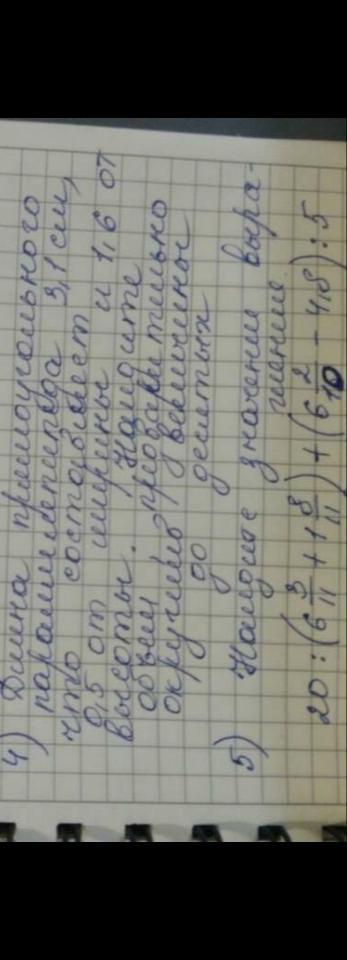 4) Длина прямоугольного
параллелепипеда 3,1 см,
что составляет
0,5 от ширины и 1,6 от
высоты. Найдите
объем, предварительно
округлив величины
до десятых
5) Найдите значение выра-
жения:
20 : (6 3/11 + 1 8/11) + (6 2/10 - 4,8) : 5